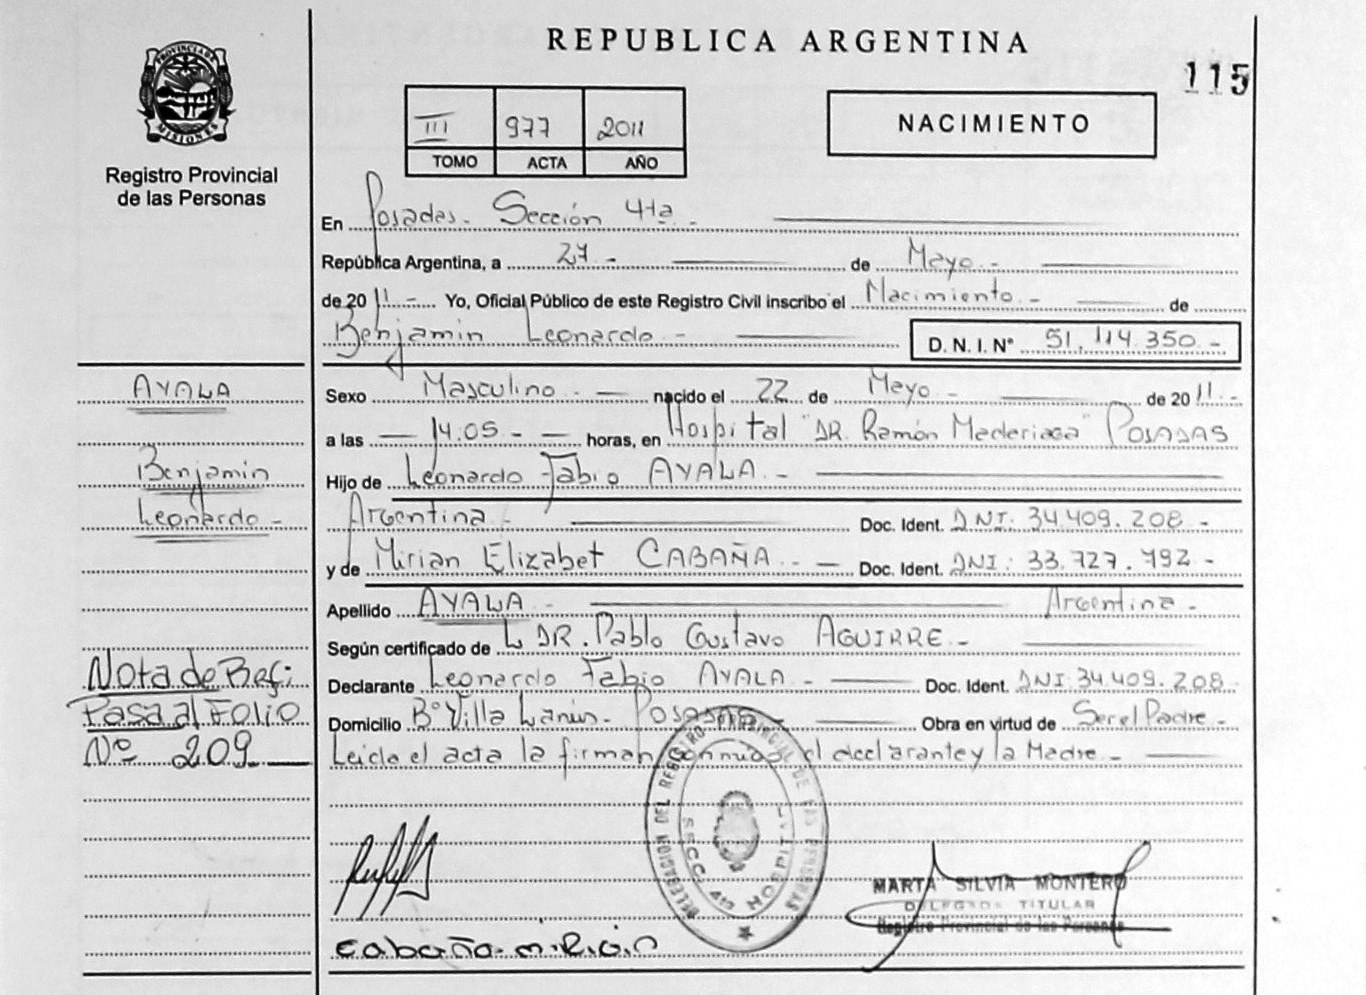 REPUBLICA ARGENTINA
115
PROVINCIA DE MISIONES
Registro Provincial
de las Personas
III 977 2011
TOMO ACTA AÑO
NACIMIENTO
En Posadas - Sección 4ta -
República Argentina, a 27 - de Mayo -
de 20 11 - Yo, Oficial Público de este Registro Civil inscribo el Nacimiento - de
Benjamin Leonardo - D. N. I. N° 51.114.350 -
AYALA
Benjamin
Leonardo -
Sexo Masculino - nacido el 22 de Mayo - de 20 11 -
a las 14:05 - horas, en Hospital "DR. Ramón Maderiaga" POSADAS
Hijo de Leonardo Fabio AYALA -
Argentina - Doc. Ident. DNI: 34.409.208 -
y de Mirian Elizabet CABAÑA - Doc. Ident. DNI: 33.727.792 -
Apellido AYALA - Argentina -
Según certificado de DR. Pablo Gustavo AGUIRRE -
Declarante Leonardo Fabio AYALA - Doc. Ident. DNI: 34.409.208 -
Domicilio B° Villa Lanús - POSADAS Obra en virtud de Ser el Padre -
Leida el acta la firman conmigo el declarante y la Madre -
Nota de Ref:
Pasa al Folio
N° 209
DELEGACION DEL REGISTRO PROVINCIAL DE LAS PERSONAS
SECC. 4ta HOSPITAL
MARTA SILVIA MONTERO
DELEGADA TITULAR
Registro Provincial de las Personas
Cabaña mirian